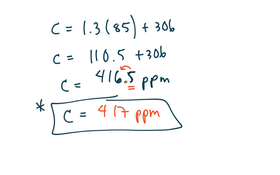 C = 1.3 (85) + 306
C = 110.5 + 306
C = 416.5 ppm
* C = 417 ppm